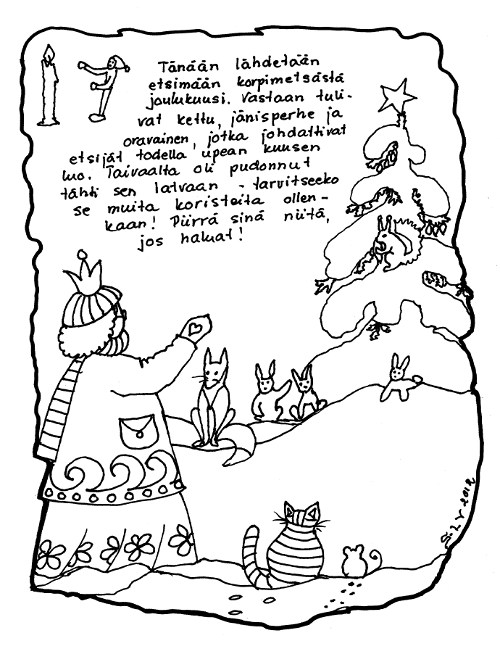 Tänään lähdetään
etsimään korpimetsästä
joulukuusi. Vastaan tuli-
vat kettu, jänisperhe ja
oravainen, jotka johdattivat
etsijät todella upean kuusen
luo. Taivaalta oli pudonnut
tähti sen latvaan - tarvitseeko
se muita koristeita ollen-
kaan! Piirrä sinä niitä,
jos haluat!